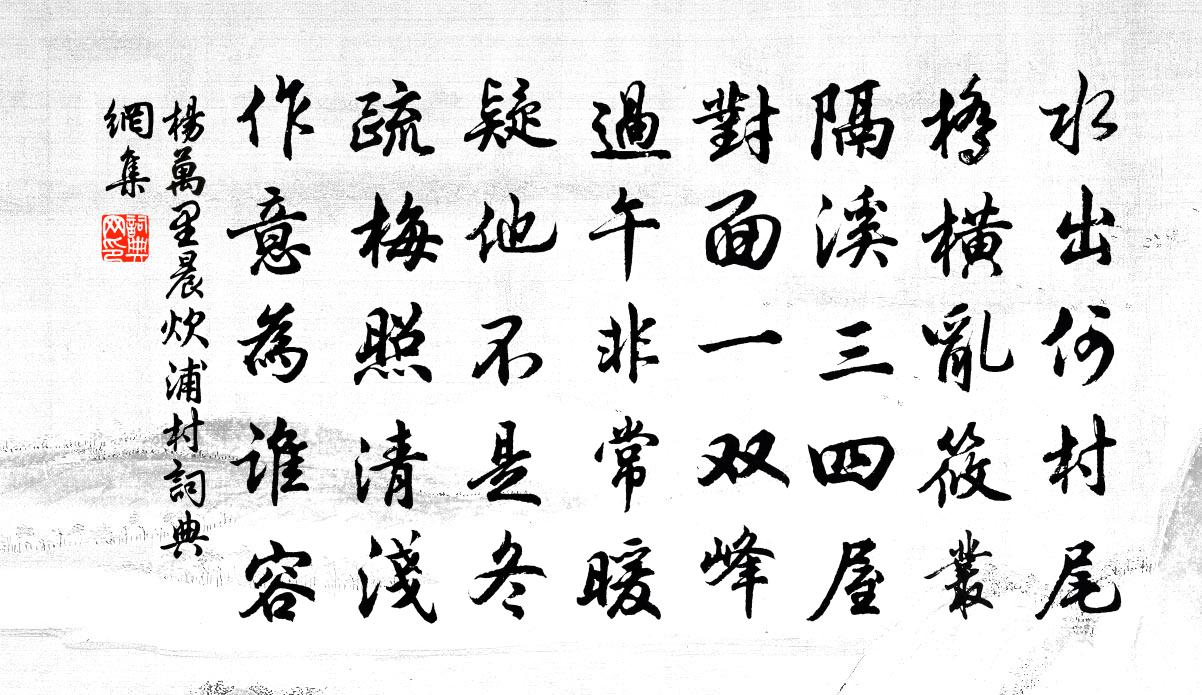 水出何村尾
橋橫亂筱叢
隔溪三四屋
對面一双峰
過午非常暖
疑他不是冬
疏梅照清淺
作意為誰容
楊萬里晨炊浦村詞典
網集
詞典
网印